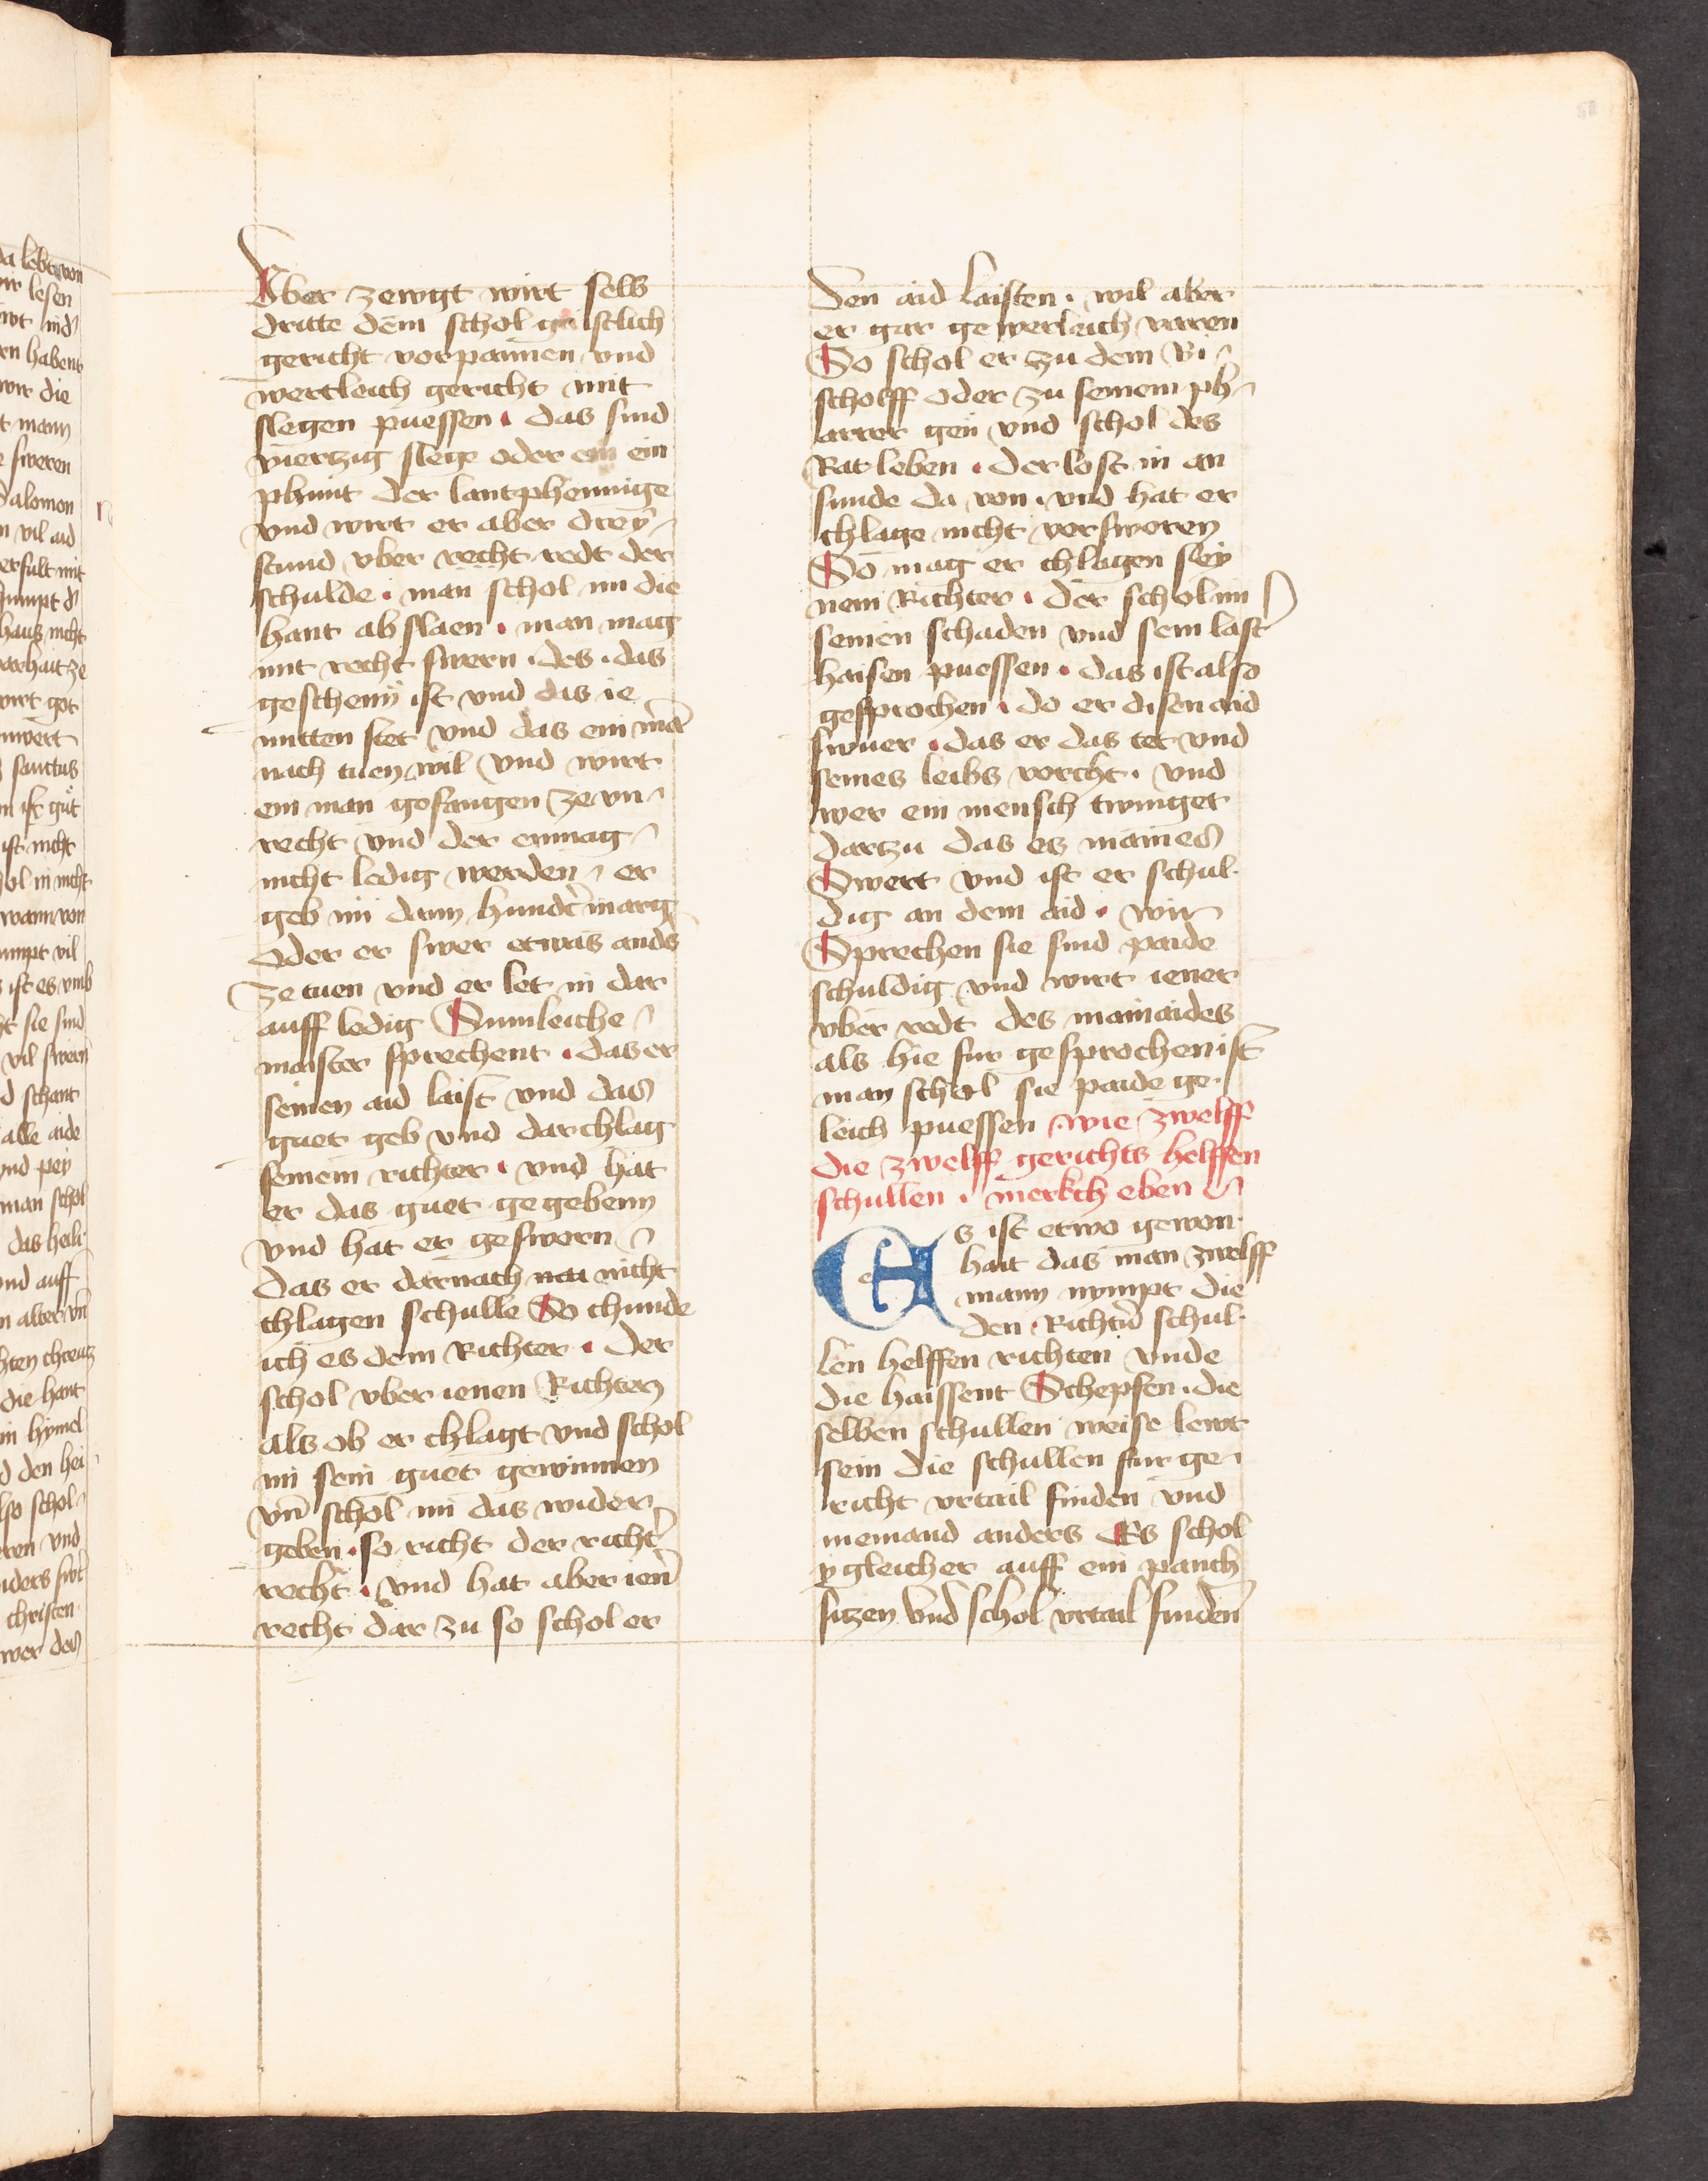 Vber zewgt wirt selb
dritte dem schol geistlich
gericht vorpannen vnd
wertleich gericht mit
slegen puessen . das sind
viertzig slege oder ein
phunt der lantphennige
vnd wirt er aber dreÿ
stund vber recht redt der
schulde . man schol im die
hant ab slaen . man mag
mit recht swern . des . das
geschenn ist vnd das ie
mitten stet vnd das ein man
nach tuen wil vnd wirt
ein man gefangen ze vn
recht vnd der enmag
nicht ledig werden er
geb im dann hundert marg
oder er swer etwas anders
ze tuen vnd er let in dar
auff ledig Sumleiche
maister sprechent . das er
seinen aid laist vnd das
guet geb vnd dar chlag
seinem richter . vnd hat
er das guet gegebenn
vnd hat er gesworn
das er darnach nicht
chlagen schulle So chunde
ich es dem Richter . der
schol vber ienen Richten
als ob er chlagt vnd schol
im sein guet gewinnen
vnd schol im das wider
geben . so richt der richter
recht . vnd hat aber iener
recht dar zu so schol er
den aid laisten . wil aber
er gar gewerleich varen
So schol er zu dem Bi
scholff oder zu seinem ph
arrer gen vnd schol des
Rat leben . der lost in an
sunde da von . vnd hat er
chlage nicht versworen
So mag er chlagen sey
nem Richter . der schol im
seinen schaden vnd sein laster
haisen puessen . das ist also
gesprochen . do er disen aid
swuer . das er das tet vnd
seines leibs vorcht . vnd
wer ein mensch twinget
dartzu das es maines
Swert vnd ist er schul
dig an dem aid . wir
Sprechen sie sind paide
schuldig vnd wirt iener
vber redt des mainaides
als hie fur gesprochen ist
man schol sie paide ge
leich puessen wie zwelff
die zwelff gerichts helffen
schullen . merkch eben
Es ist etwo gewon
hait das man zwelff
mann nympt die
den Richtern schul
len helffen richten vnde
die haissent Schepfen . die
selben schullen weise lewt
sein die schullen fur ge
richt vrtail finden vnd
niemand anders Es schol
ygleicher auff ein panch
sitzen vnd schol vrtail finden